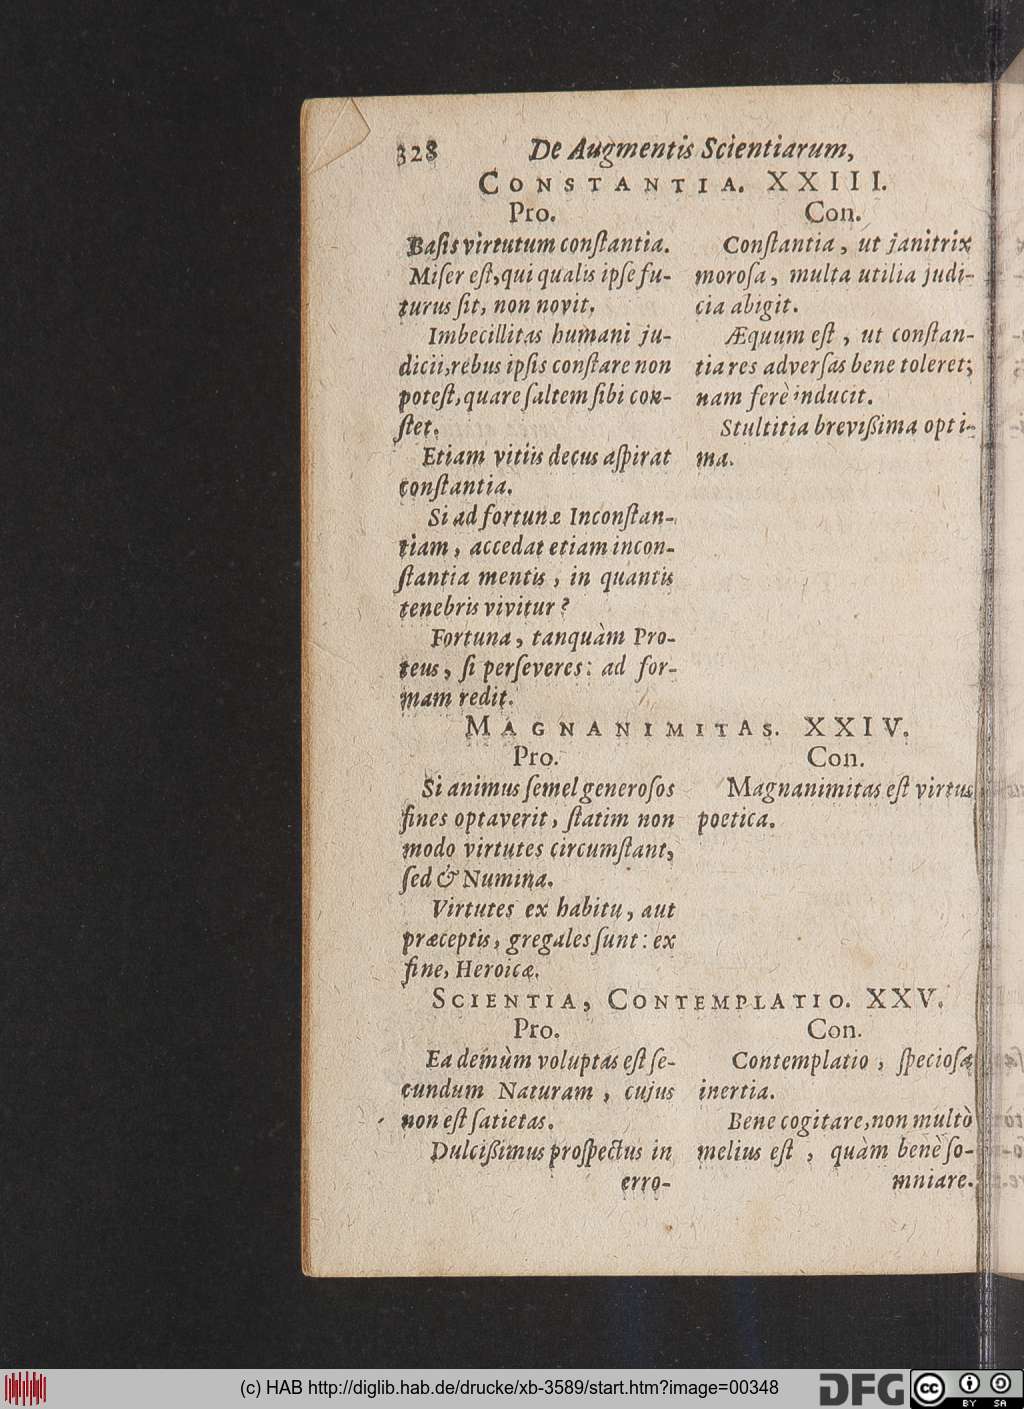 328 De Augmentis Scientiarum,
CONSTANTIA. XXIII.
Pro.
Baſis virtutum conſtantia.
Miſer eſt, qui qualis ipſe fu-
turus ſit, non novit.
Imbecillitas humani ju-
dicii, rebus ipſis conſtare non
poteſt, quare ſaltem ſibi con-
ſtet.
Etiam vitiis decus aſpirat
conſtantia.
Si ad fortunæ Inconſtan-
tiam, accedat etiam incon-
ſtantia mentis, in quantis
tenebris vivitur?
Fortuna, tanquàm Pro-
teus, ſi perſeveres: ad for-
mam redit.
Con.
Conſtantia, ut janitrix
moroſa, multa utilia judi-
cia abigit.
Æquum eſt, ut conſtan-
tia res adverſas bene toleret;
nam ferè inducit.
Stultitia brevißima opti-
ma.
MAGNANIMITAS. XXIV.
Pro.
Si animus ſemel generoſos
fines optaverit, ſtatim non
modo virtutes circumſtant,
ſed & Numina.
Virtutes ex habitu, aut
præceptis, gregales ſunt: ex
fine, Heroicæ.
Con.
Magnanimitas eſt virtus
poetica.
SCIENTIA, CONTEMPLATIO. XXV.
Pro.
Ea demùm voluptas eſt ſe-
cundum Naturam, cujus
non eſt ſatietas.
Dulcißimus proſpectus in
erro-
Con.
Contemplatio, ſpecioſa
inertia.
Bene cogitare, non multò
melius eſt, quàm benè ſo-
mniare.
(c) HAB http://diglib.hab.de/drucke/xb-3589/start.htm?image=00348
DFG
cc
BY SA